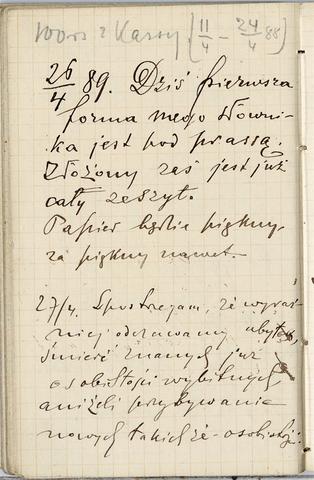 100 rs z Kassy [11/4 – 24/4 88]
26/4 89. Dziś pierwsza
forma mego Słowni-
ka jest pod prassą.
Złożony zaś jest już
cały zeszyt.
Papier będzie piękny,
za piękny nawet.
27/4. Spostrzegam, że wyraź-
niej odczuwamy ubytek,
śmierć znanych już
osobistości wybitnych,
aniżeli przybywanie
nowych takichże osobistości